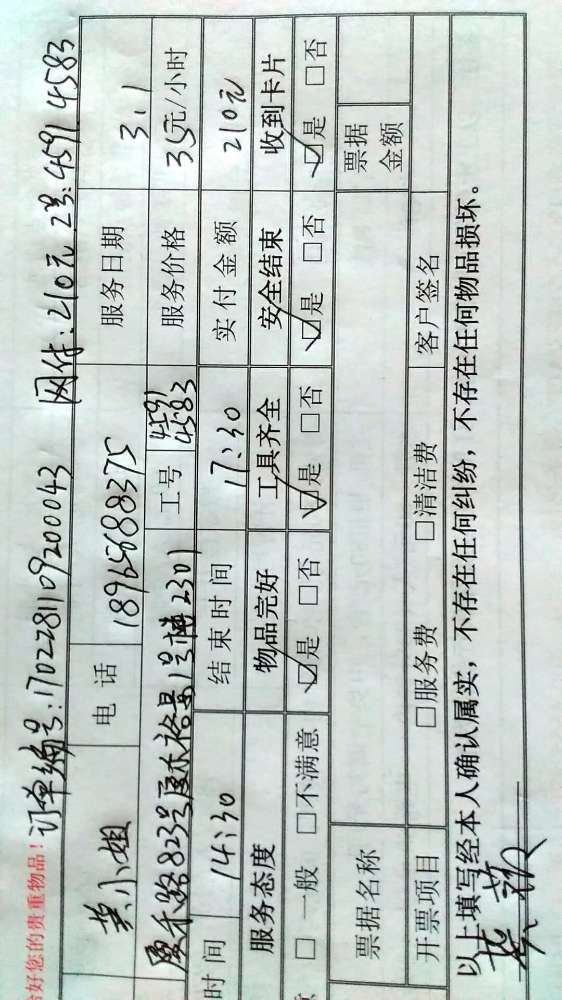 合好您的贵重物品! 订单编号:1702281109200043 网付:210元 2号:4591 4583
龚小姐 电话 18965688375 服务日期 3.1
厦禾路823号厦禾裕景1号楼2301 工号 4591 4583 服务价格 35元/小时
时间 14:30 结束时间 17:30 实付金额 210元
服务态度 物品完好 工具齐全 安全结束 收到卡片
□ 一般 □不满意 □是 □否 □是 □否 □是 □否 □是 □否
票据名称 票据金额
开票项目 □服务费 □清洁费 客户签名
以上填写经本人确认属实,不存在任何纠纷,不存在任何物品损坏。